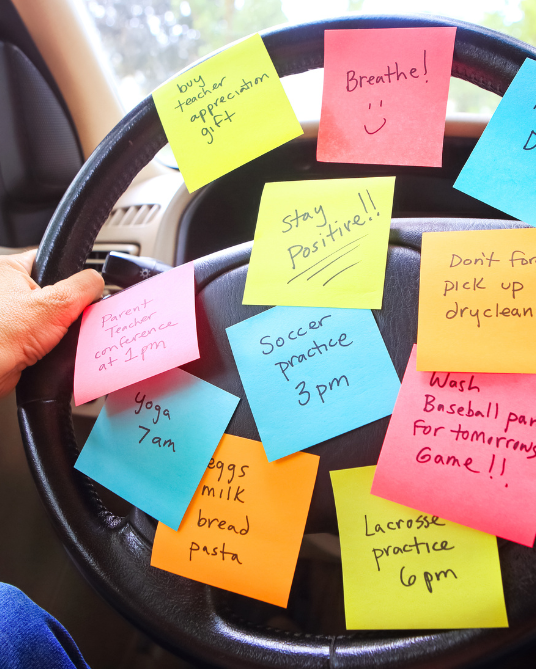 buy
teacher
appreciation
gift
Breathe!
Stay
Positive!!
Don't for
pick up
dryclean
Parent
Teacher
conference
at 1pm
Soccer
practice
3pm
Wash
Baseball pan
for tomorrows
Game!!
Yoga
7am
eggs
milk
bread
pasta
Lacrosse
practice
6pm